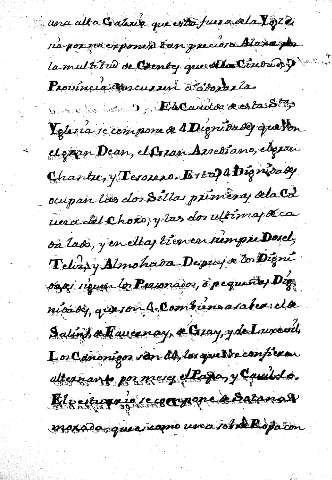 una alta Galeria que está fuera de la Ygle-
sia por no exponer tan preciosa Alaxa por
la multitud de Gentes que de la Ciudad, y
Provincia concurren á adorarla.
El Cavildo de esta Sta.
Yglesia se compone de 4 Dignidades que son
el gran Dean, el Gran Arcediano, el gran
Chantre, y Tesorero. Estas 4 Dignidades
ocupan las dos Sillas primeras de la Ca-
vera del Choro, y las dos ultimas de ca-
da lado, y en ellas tienen siempre Dosel,
Teliz, y Almohada. Despues de los Digni-
dades siguen los Personados, ó pequeñas Dig-
nidades, que son 4. Combiene a saber: el de
Salins, de Favernay, de Gray, y de Luxeuil.
Los Canonigos son 44, los que se confieren
alternante por meses el Papa, y Cavildo.
El vestuario se compone de Sotana
morada, que es como una de Ropa con